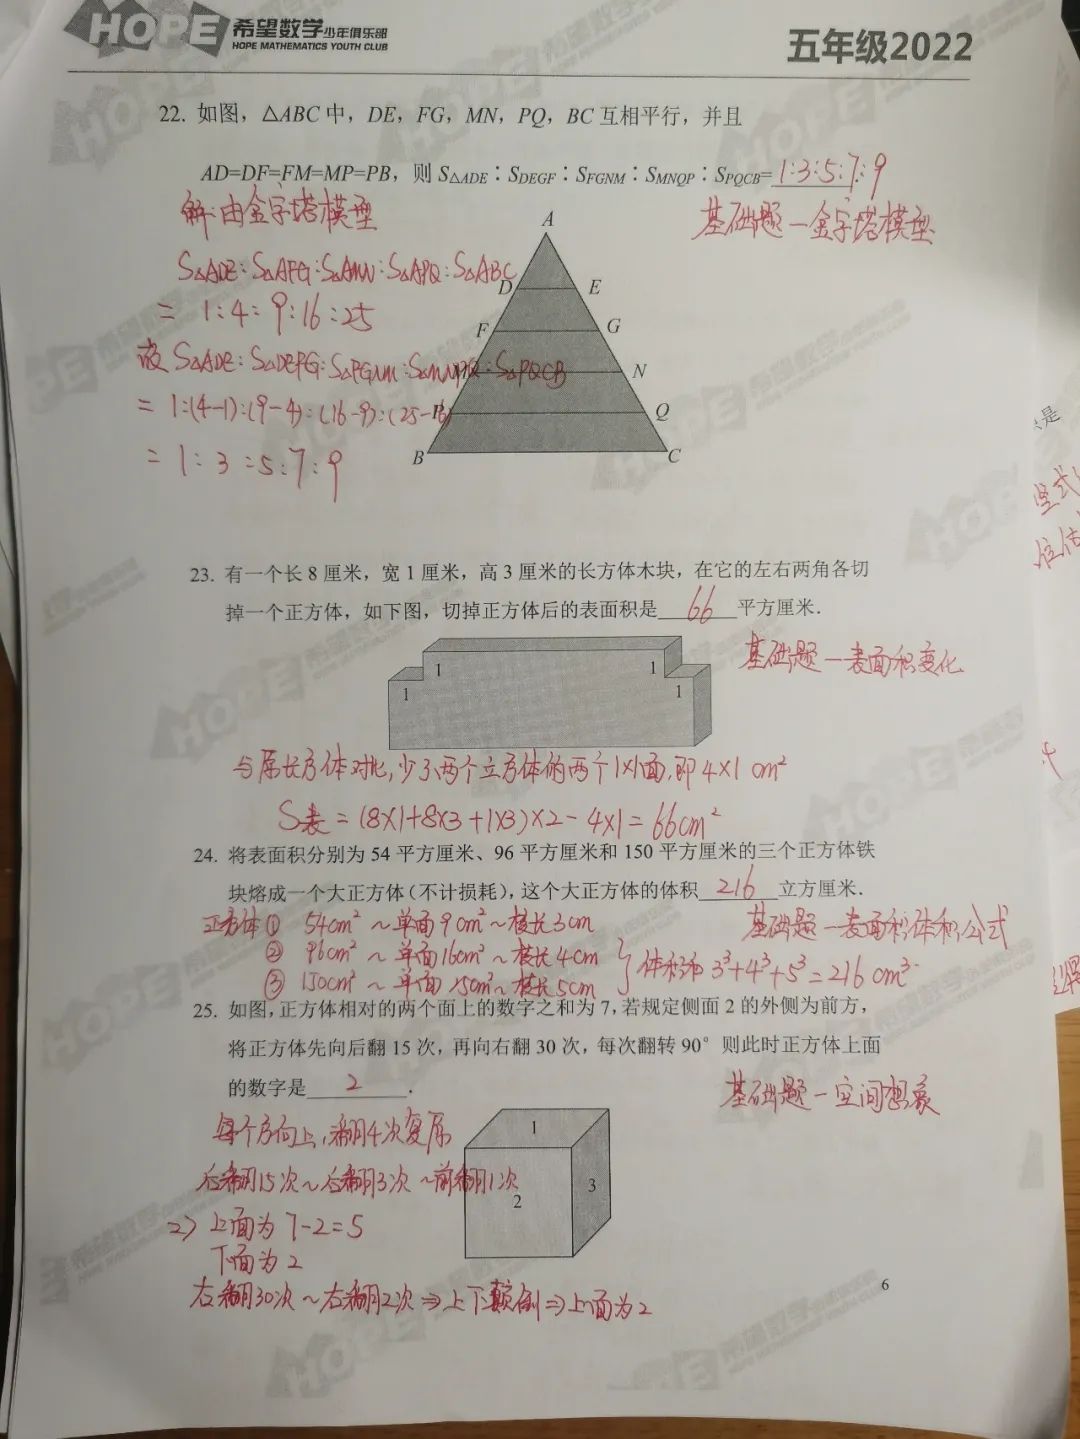 HOPE 希望数学少年俱乐部
HOPE MATHEMATICS YOUTH CLUB
五年级2022
22. 如图，△ABC 中，DE，FG，MN，PQ，BC 互相平行，并且
AD=DF=FM=MP=PB，则 S△ADE：SDEGF：SFGNM：SMNQP：SPQCB= 1:3:5:7:9
解：由金字塔模型
基础题—金字塔模型
S△ADE:S△AFG:S△AMN:S△APQ:S△ABC
= 1:4:9:16:25
故 S△ADE:S△DEFG:S△FGNM:S△MNPQ:S△PQCB
= 1:(4-1):(9-4):(16-9):(25-16)
= 1:3:5:7:9
A
D E
F G
M N
P Q
B C
23. 有一个长 8 厘米，宽 1 厘米，高 3 厘米的长方体木块，在它的左右两角各切
掉一个正方体，如下图，切掉正方体后的表面积是 66 平方厘米.
基础题—表面积变化
1 1 1 1
与原长方体对比，少了两个立方体的两个1×1面，即 4×1 cm²
S表 = (8×1+8×3+1×3)×2-4×1=66cm²
24. 将表面积分别为 54 平方厘米、96 平方厘米和 150 平方厘米的三个正方体铁
块熔成一个大正方体（不计损耗），这个大正方体的体积 216 立方厘米.
正方体① 54cm² ~ 单面9cm² ~ 棱长3cm
基础题—表面积体积公式
② 96cm² ~ 单面16cm² ~ 棱长4cm
体积和 3³+4³+5³=216 cm³
③ 150cm² ~ 单面25cm² ~ 棱长5cm
25. 如图，正方体相对的两个面上的数字之和为 7，若规定侧面 2 的外侧为前方，
将正方体先向后翻 15 次，再向右翻 30 次，每次翻转 90° 则此时正方体上面
的数字是 2 .
基础题—空间想象
每个方向上，翻4次复原
后翻15次~后翻3次~前翻1次
1
2
3
=> 上面为 7-2=5
下面为 2
右翻30次~右翻2次⇒上下颠倒⇒上面为2
6
是
竖式